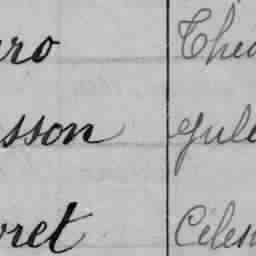 rro Théo
sson Jule
oret Céles